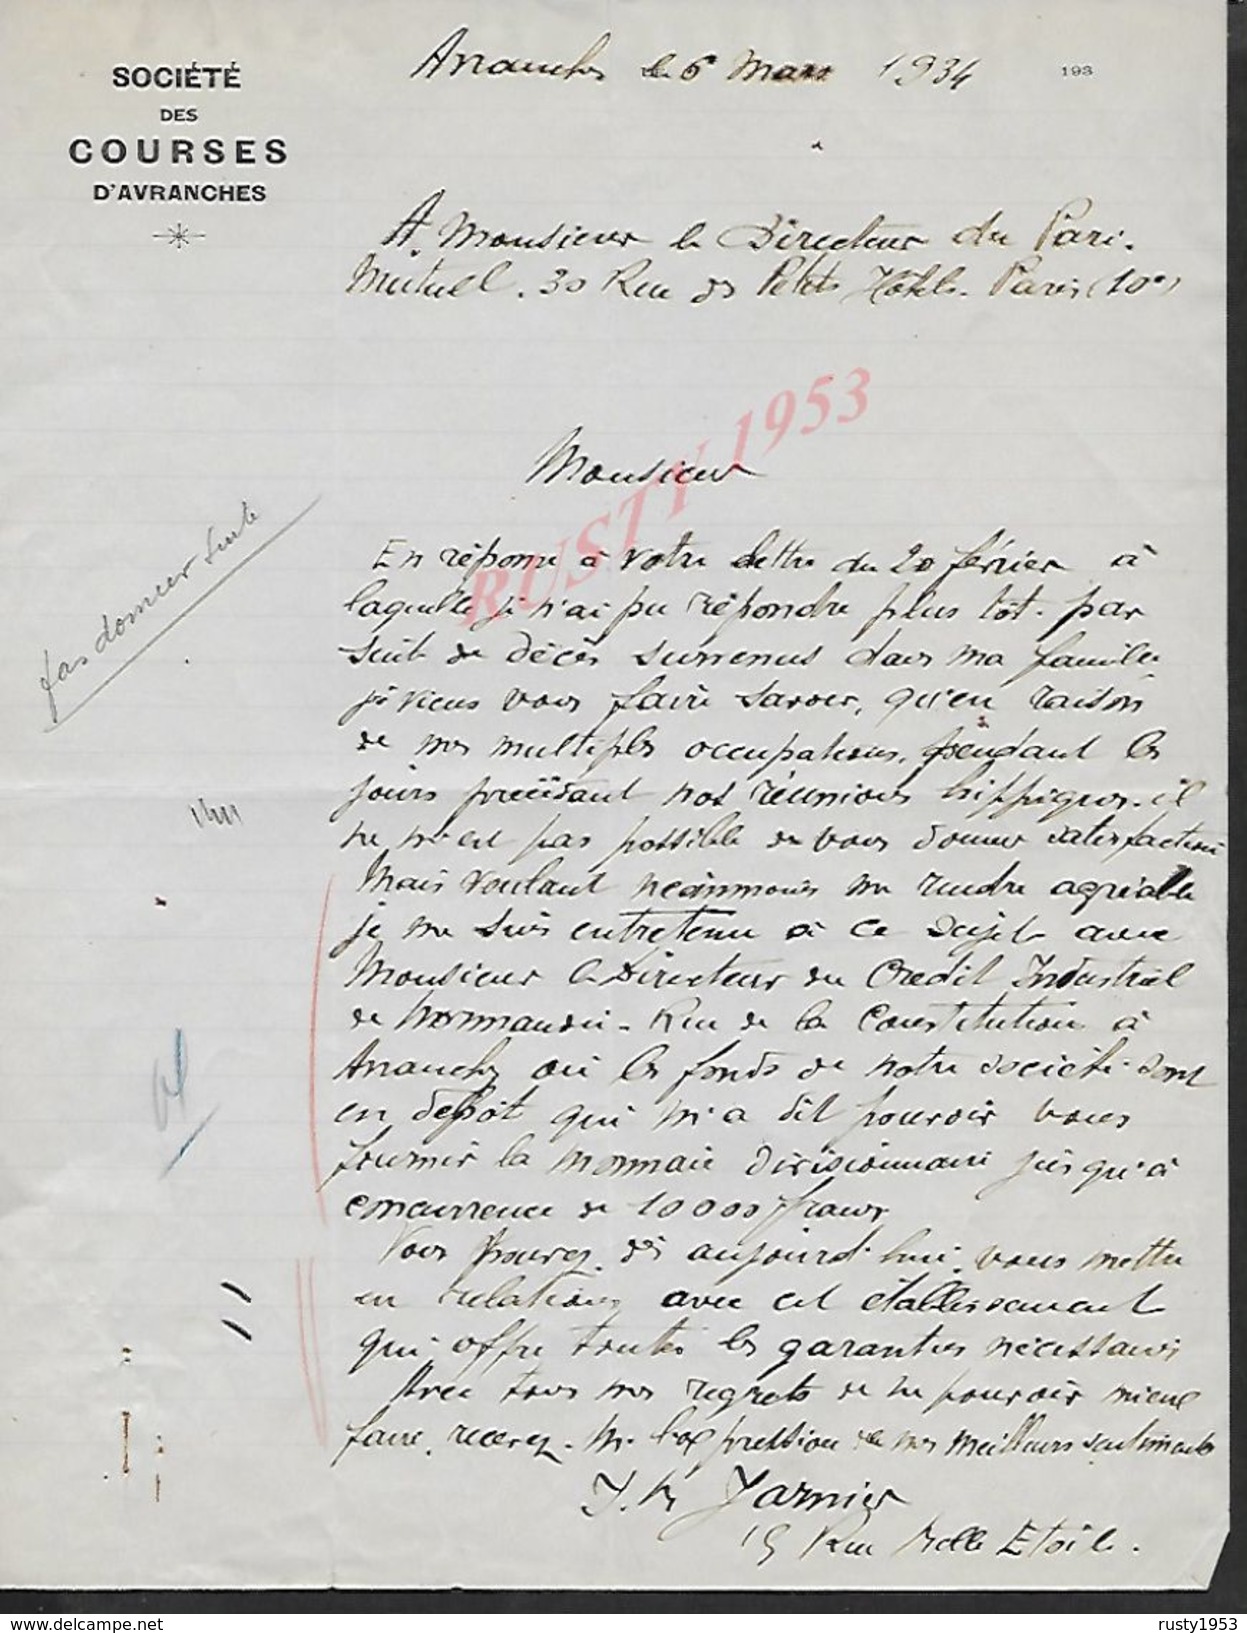 SOCIÉTÉ
DES
COURSES
D'AVRANCHES
Avranches le 6 Mars 1934
193
A Monsieur le Directeur du Pari-
Mutuel. 30 Rue des Petits Hôtels. Paris (10e)
RUSTY 1953
Monsieur
pas donner suite
En réponse à votre lettre du 20 février à
laquelle je n'ai pu répondre plus tôt. par
suite de décès survenus dans ma famille
je viens vous faire savoir, qu'en raison
de mes multiples occupations, pendant les
jours précédant nos réunions hippiques. il
ne m'est pas possible de vous donner satisfaction
Mais voulant néanmoins me rendre agréable
je me suis entretenu à ce sujet avec
Monsieur le Directeur du Crédit Industriel
de Normandie - Rue de la Constitution à
Avranches où les fonds de notre société sont
en dépôt qui m'a dit pouvoir vous
fournir la monnaie divisionnaire jusqu'à
concurrence de 10000 francs
Vous pouvez dès aujourd'hui vous mettre
en relations avec cet établissement
qui offre toutes les garanties nécessaires
Avec tous mes regrets de ne pouvoir mieux
faire, recevez. M. l'expression de mes meilleurs sentiments
15 Rue Belle Etoile.
delcampe.net
rusty1953